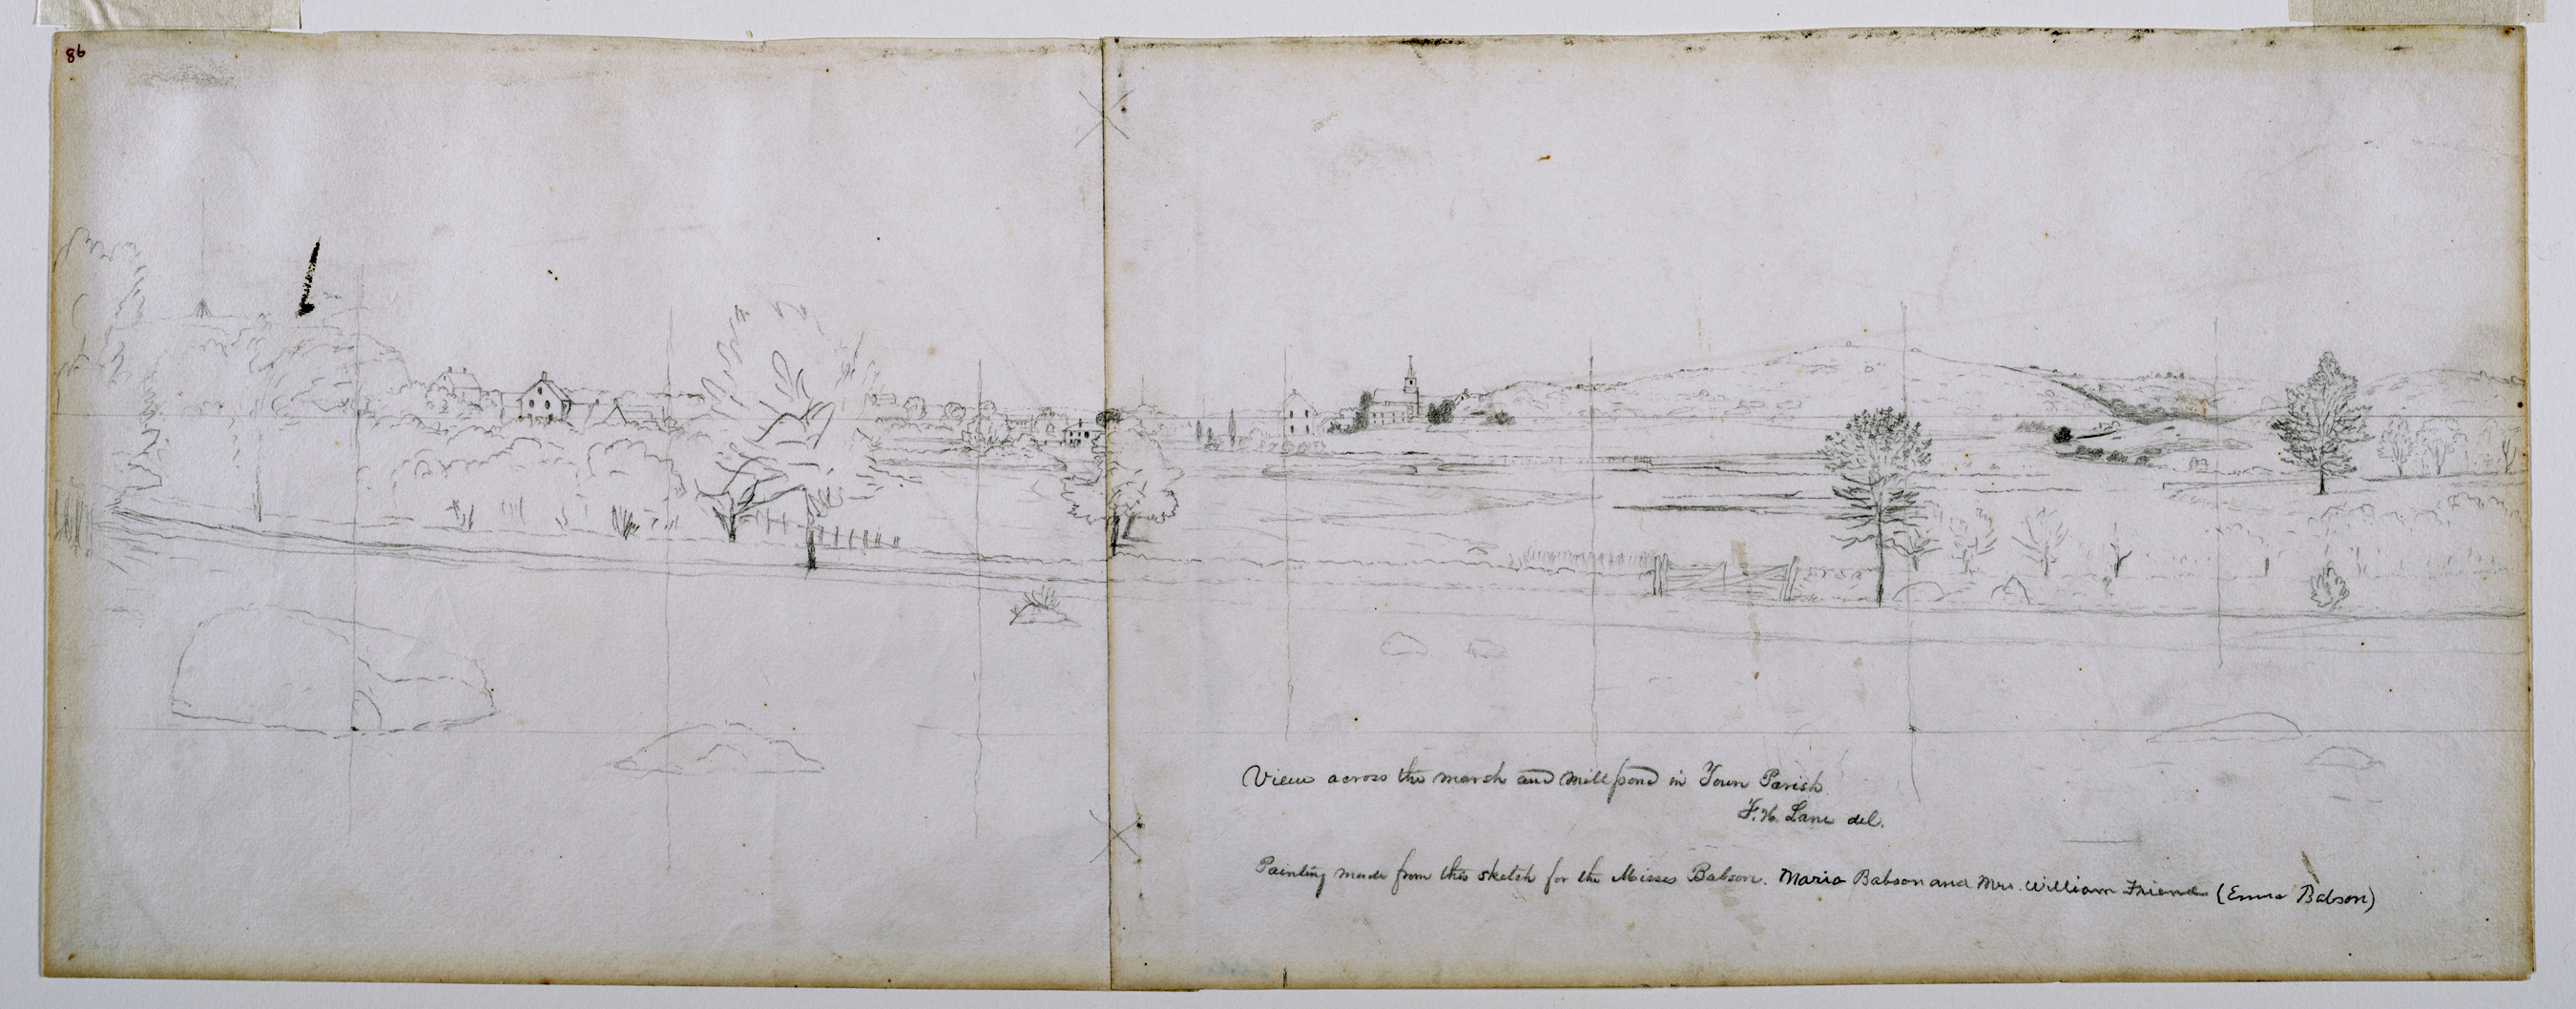 86
View across the marsh and mill pond in Town Parish.
F. H. Lane del.
Painting made from this sketch for the Misses Babson. Maria Babson and Mrs. William Friend (Emma Babson)